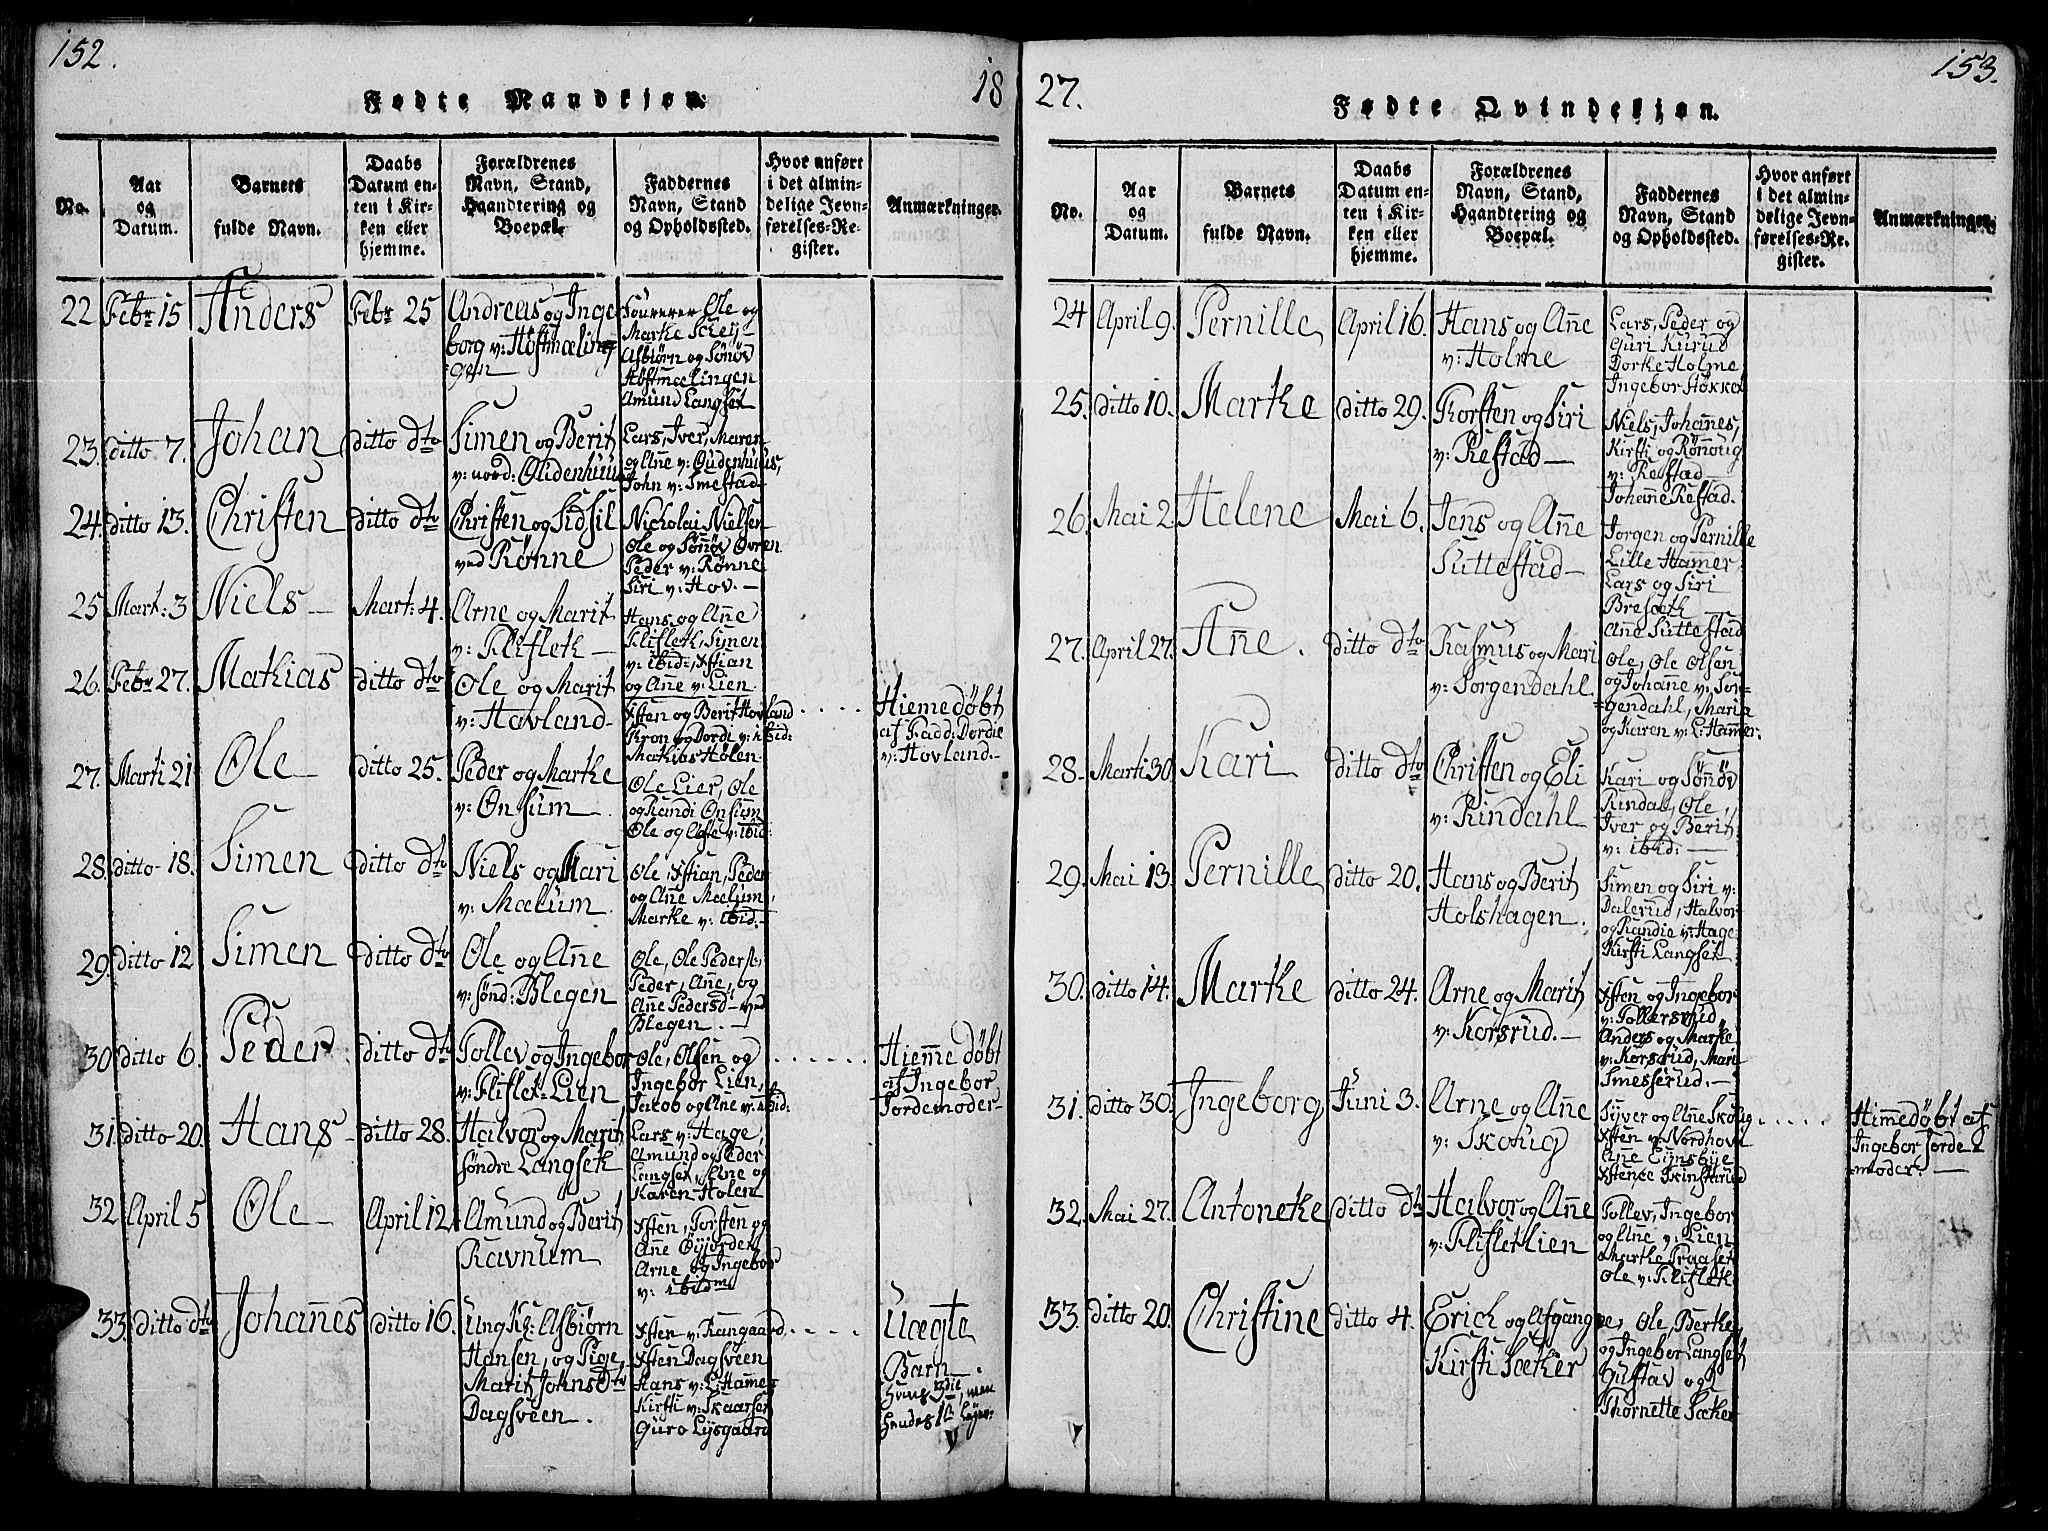 152.
18
Fødte Mandkjøn.
No.
Aar
og
Datum.
Barnets
fulde Navn.
Daabs
Datum en-
ten i Kir-
ken eller
hjemme.
Forældrenes
Navn, Stand,
Haandtering og
Boepæl.
Faddernes
Navn, Stand
og Opholdssted.
Hvor anført
i det almin-
delige Jevn-
førelses-Re-
gister.
Anmærkninger.
22 Febr 15 Anders Febr 25
Andreas og Inge
borg v: Høstmæling
gen
Ole og
Marke
Asbiørn og Sønøv
Høstmælingen
Amund Langset
23. ditto 7. Johan ditto dto
Simen og Berit
v: nord: Oudenhuus
Lars, Iver, Maren
og Ane v: Oudenhuus,
John v: Smestad
24. ditto 13. Christen ditto dto
Christen og Sidsil
ved Rønne
Nicholai Nielsen
Ole og Sønøv Ovren
Peder v: Rønne
Siri v: Hov.
25 Mart: 3 Niels Mart: 4.
Arne og Marit
v: Flifletk
Hans og Ane
Flifletk, Simen
v: ibid:, Xstian
og Ane v: Lien
26. Febr 27. Matkias ditto dto
Ole og Marit
v: Havland
Xsten og Berit Hovland
Kron og Dordi v: ibid:
Matkias Holen
Hiemedøbt
af Fadd: Dordie
v: Hovland.
27. Marti 21 Ole ditto 25.
Peder og Marke
v: Onsum
Ole Lier, Ole
og Randi Onsum
Ole og v: ibid:
28. ditto 18. Simen ditto dto
Niels og Mari
v: Mælum
Ole, Xstian, Peder
og Ane Mælum,
Marke v: ibid:
29. ditto 12 Simen ditto dto
Ole og Ane
v: sønd: Blegen
Ole, Ole Peders:,
Peder, Ane, og
Ane Pedersd ved
Blegen.
30 ditto 6. Peder ditto dto
Tollev og Ingebor
v: Fliflet-Lien
Ole, Olsen og
Ingebor Lien,
Jacob og Ane v: ibid:
Hiemedøbt
af Ingebor
Jordemoder
31. ditto 20. Hans ditto 28.
Halvor og Marit
søndre Langsetk
Lars v: Hage,
Amund og Peder
Langset, Ane og
Karen Holen
32 April 5 Ole April 12
Amund og Berit
Ravnum
Xsten, Torsten og
Ane Øyjorden
Arne og Ingebor
v: ibidm
33. ditto dto Johannes ditto 16.
Ung Kr: Asbiørn
Hansen, og Pige
Marit Johnsdtr
Dagsveen.
Xsten v: Rangaard
Xsten Dagsveen
Hans v: L: Hammer
Kirsti v: Skaarset
Guro Lysgaard
Uægte
Barn
Hans 3die, men
hendes 1te
153.
27.
Fødte Qvindekjøn.
No.
Aar
og
Datum.
Barnets
fulde Navn.
Daabs
Datum en-
ten i Kir-
ken eller
hjemme.
Forældrenes
Navn, Stand,
Haandtering og
Boepæl.
Faddernes
Navn, Stand
og Opholdssted.
Hvor anført
i det almin-
delige Jevn-
førelses-Re-
gister.
Anmærkninger.
24 April 9. Pernille April 16.
Hans og Ane
v: Holme
Lars, Peder og
Guri Kurud
Dorke Holme
Ingebor Høkker
25. ditto 10. Marke ditto 29.
Torsten og Siri
v: Restad
Niels, Johannes,
Kirsti og Rønnoug
v: Restad
Johanne Restad.
26. Mai 2. Helene Mai 6.
Jens og Ane
Suttestad
Jorgen og Pernille
Lille Hammer,
Lars og Siri
Bresætk
Ane Suttestad
27. April 27. Ane. ditto dto
Rasmus og Mari
v: Sorgendahl
Ole, Ole Olsen
og Johanne v: Sor-
gendahl, Maria
og Karen v: L: Hammer.
28. Marti 30. Kari ditto dto
Christen og Eli
v: Rindahl
Kari og Sønnøv
Rindal, Ole,
Iver og Berit
v: ibid:
29. Mai 13. Pernille ditto 20.
Hans og Berit
Holshagen.
Simen og Siri v:
Dalerud, Halvor
og Randie v: Hage
Kirsti Langset
30. ditto 14. Marke ditto 24.
Arne og Marit
v: Korsrud.
Xsten og Ingebor
v: Tollersrud
Anders og Marke
v: Korsrud, Mari
Smesserud.
31. ditto 30. Ingeborg Juni 3.
Arne og Ane
v: Skoug
Syver og Ane Skoug
Xsten v: Nordhove
Ane Eynsbye
Xstence
Himedøbt af
Ingebor Jorde
moder.
32. Mai 27. Antonetke ditto dto
Halvor og Ane
v: Flifletlien
Tollev, Ingebor
og Ane v: Lien
Marke Praaset
Ole v: Flifletk
33. ditto 20. Christine ditto 4.
Erich og Afgangne,
Kirsti Sæker
Ole, Berke,
og Ingebor Langset
Gustav og
Thornette Sæker